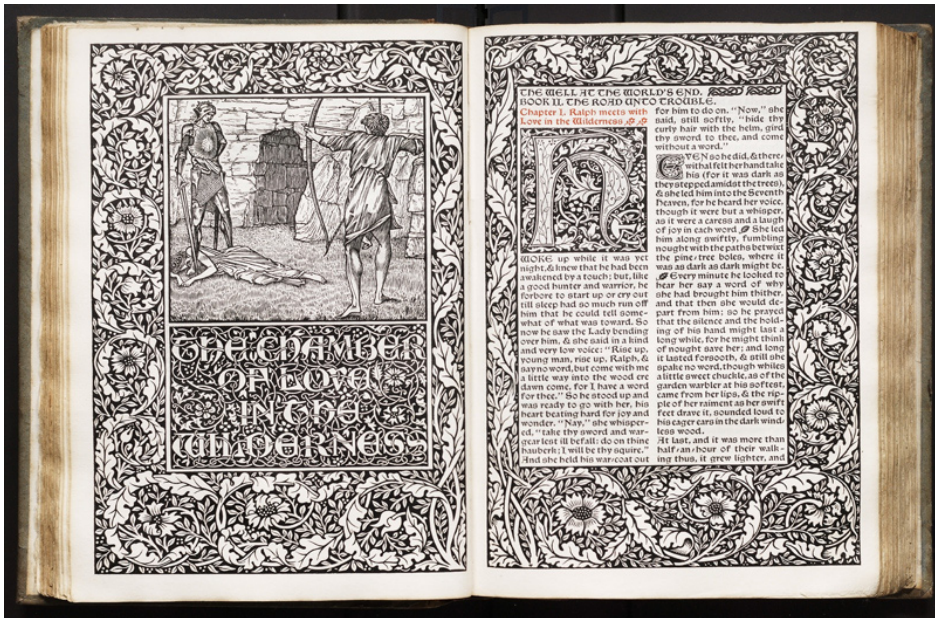 THE CHAMBER
OF LOVE
IN THE
WILDERNES
THE WELL AT THE WORLD'S END.
BOOK II. THE ROAD UNTO TROUBLE.
Chapter I. Ralph meets with
Love in the Wilderness
HWOKE up while it was yet
night, & knew that he had been
awakened by a touch; but, like
a good hunter and warrior, he
forbore to start up or cry out
till sleep had so much run off
him that he could tell some-
what of what was toward. So
now he saw the Lady bending
over him, & she said in a kind
and very low voice: "Rise up,
young man, rise up, Ralph, &
say no word, but come with me
a little way into the wood ere
dawn come, for I have a word
for thee." So he stood up and
was ready to go with her, his
heart beating hard for joy and
wonder. "Nay," she whisper-
ed, "take thy sword and war-
gear lest ill befall: do on thine
hauberk; I will be thy squire."
And she held his war-coat out
for him to do on. "Now," she
said, still softly, "hide thy
curly hair with the helm, gird
thy sword to thee, and come
without a word."
EVEN so he did, & there-
withal felt her hand take
his (for it was dark as
they stepped amidst the trees),
& she led him into the Seventh
Heaven, for he heard her voice,
though it were but a whisper,
as it were a caress and a laugh
of joy in each word. She led
him along swiftly, fumbling
nought with the paths betwixt
the pine-tree boles, where it
was as dark as dark might be.
Every minute he looked to
hear her say a word of why
she had brought him thither,
and that then she would de-
part from him; so he prayed
that the silence and the hold-
ing of his hand might last a
long while, for he might think
of nought save her; and long
it lasted forsooth, & still she
spake no word, though whiles
a little sweet chuckle, as of the
garden warbler at his softest,
came from her lips, & the rip-
ple of her raiment as her swift
feet drave it, sounded loud to
his eager ears in the dark wind-
less wood.
At last, and it was more than
half-an-hour of their walk-
ing thus, it grew lighter, and